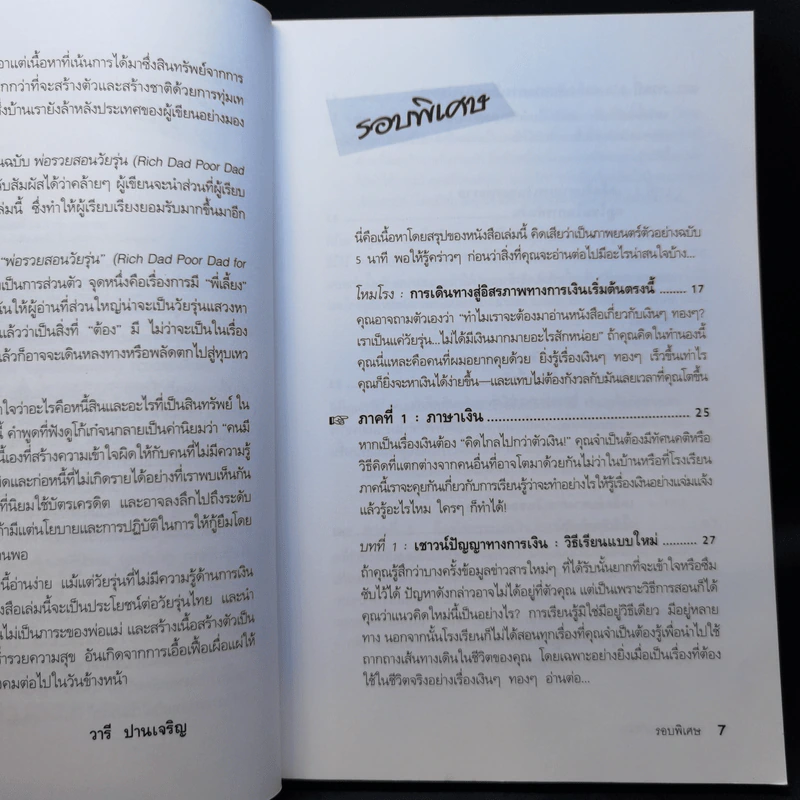 อาแต่เนื้อหาที่เน้นการได้มาซึ่งสินทรัพย์จากการ
กกว่าที่จะสร้างตัวและสร้างชาติด้วยการทุ่มเท
ซึ่งบ้านเรายังล้าหลังประเทศของผู้เขียนอย่างมอง
นฉบับ พ่อรวยสอนวัยรุ่น (Rich Dad Poor Dad
บสัมผัสได้ว่าคล้ายๆ ผู้เขียนจะนำส่วนที่ผู้เรียบ
ล่มนี้ ซึ่งทำให้ผู้เรียบเรียงยอมรับมากขึ้นมาอีก
"พ่อรวยสอนวัยรุ่น" (Rich Dad Poor Dad for
งเป็นการส่วนตัว จุดหนึ่งคือเรื่องการมี "พี่เลี้ยง"
นให้ผู้อ่านที่ส่วนใหญ่น่าจะเป็นวัยรุ่นแสวงหา
แล้วว่าเป็นสิ่งที่ "ต้อง" มี ไม่ว่าจะเป็นในเรื่อง
แล้วก็อาจจะเดินหลงทางหรือพลัดตกไปสู่หุบเหว
าใจว่าอะไรคือหนี้สินและอะไรที่เป็นสินทรัพย์ ใน
คำพูดที่ฟังดูโก้เก๋จนกลายเป็นค่านิยมว่า "คนมี
นี้เองที่สร้างความเข้าใจผิดให้กับคนที่ไม่มีความรู้
ผิดและก่อหนี้ที่ไม่เกิดรายได้อย่างที่เราพบเห็นกัน
ที่นิยมใช้บัตรเครดิต และอาจลงลึกไปถึงระดับ
ามีแต่นโยบายและการปฏิบัติในการให้กู้ยืมโดย
นพอ
นี้อ่านง่าย แม้แต่วัยรุ่นที่ไม่มีความรู้ด้านการเงิน
สือเล่มนี้จะเป็นประโยชน์ต่อวัยรุ่นไทย และนำ
นไม่เป็นภาระของพ่อแม่ และสร้างเนื้อสร้างตัวเป็น
ร่ำรวยความสุข อันเกิดจากการเอื้อเฟื้อเผื่อแผ่ให้
งคมต่อไปในวันข้างหน้า
วารี ปานเจริญ
รอบพิเศษ
นี่คือเนื้อหาโดยสรุปของหนังสือเล่มนี้ คิดเสียว่าเป็นภาพยนตร์ตัวอย่างฉบับ
5 นาที พอให้รู้คร่าวๆ ก่อนว่าสิ่งที่คุณจะอ่านต่อไปมีอะไรน่าสนใจบ้าง...
โหมโรง : การเดินทางสู่อิสรภาพทางการเงินเริ่มต้นตรงนี้ ........ 17
คุณอาจถามตัวเองว่า "ทำไมเราจะต้องมาอ่านหนังสือเกี่ยวกับเงินๆ ทองๆ?
เราเป็นแค่วัยรุ่น...ไม่ได้มีเงินมากมายอะไรสักหน่อย" ถ้าคุณคิดในทำนองนี้
คุณนี่แหละคือคนที่ผมอยากคุยด้วย ยิ่งรู้เรื่องเงินๆ ทองๆ เร็วขึ้นเท่าไร
คุณก็ยิ่งจะหาเงินได้ง่ายขึ้น—และแทบไม่ต้องกังวลกับมันเลยเวลาที่คุณโตขึ้น
☞ ภาคที่ 1 : ภาษาเงิน ........................................ 25
หากเป็นเรื่องเงินต้อง "คิดไกลไปกว่าตัวเงิน!" คุณจำเป็นต้องมีทัศนคติหรือ
วิธีคิดที่แตกต่างจากคนอื่นที่อาจโตมาด้วยกันไม่ว่าในบ้านหรือที่โรงเรียน
ภาคนี้เราจะคุยกันเกี่ยวกับการเรียนรู้ว่าจะทำอย่างไรให้รู้เรื่องเงินอย่างแจ่มแจ้ง
แล้วรู้อะไรไหม ใครๆ ก็ทำได้!
บทที่ 1 : เชาวน์ปัญญาทางการเงิน : วิธีเรียนแบบใหม่ .......... 27
ถ้าคุณรู้สึกว่าบางครั้งข้อมูลข่าวสารใหม่ๆ ที่ได้รับนั้นยากที่จะเข้าใจหรือซึม
ซับไว้ได้ ปัญหาดังกล่าวอาจไม่ได้อยู่ที่ตัวคุณ แต่เป็นเพราะวิธีการสอนก็ได้
คุณว่าแนวคิดใหม่นี้เป็นอย่างไร? การเรียนรู้มิใช่มีอยู่วิธีเดียว มีอยู่หลาย
ทาง นอกจากนั้นโรงเรียนก็ไม่ได้สอนทุกเรื่องที่คุณจำเป็นต้องรู้เพื่อนำไปใช้
ถากถางเส้นทางเดินในชีวิตของคุณ โดยเฉพาะอย่างยิ่งเมื่อเป็นเรื่องที่ต้อง
ใช้ในชีวิตจริงอย่างเรื่องเงินๆ ทองๆ อ่านต่อ...
รอบพิเศษ 7